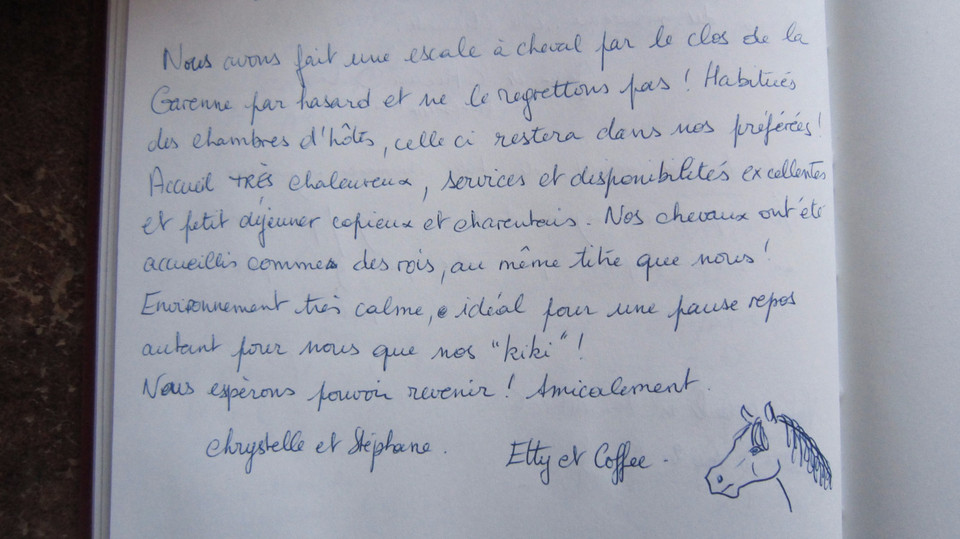 Nous avons fait une escale à cheval par le clos de la
Garenne par hasard et ne le regrettons pas ! Habitués
des chambres d'hôtes, celle ci restera dans nos préférées !
Accueil TRÈS chaleureux, services et disponibilités excellentes
et petit déjeuner copieux et charentais. Nos chevaux ont été
accueillis comme des rois, au même titre que nous !
Environnement très calme, idéal pour une pause repos
autant pour nous que nos "kiki" !
Nous espérons pouvoir revenir ! Amicalement.
Chrystelle et Stéphane. Etty et Coffee.